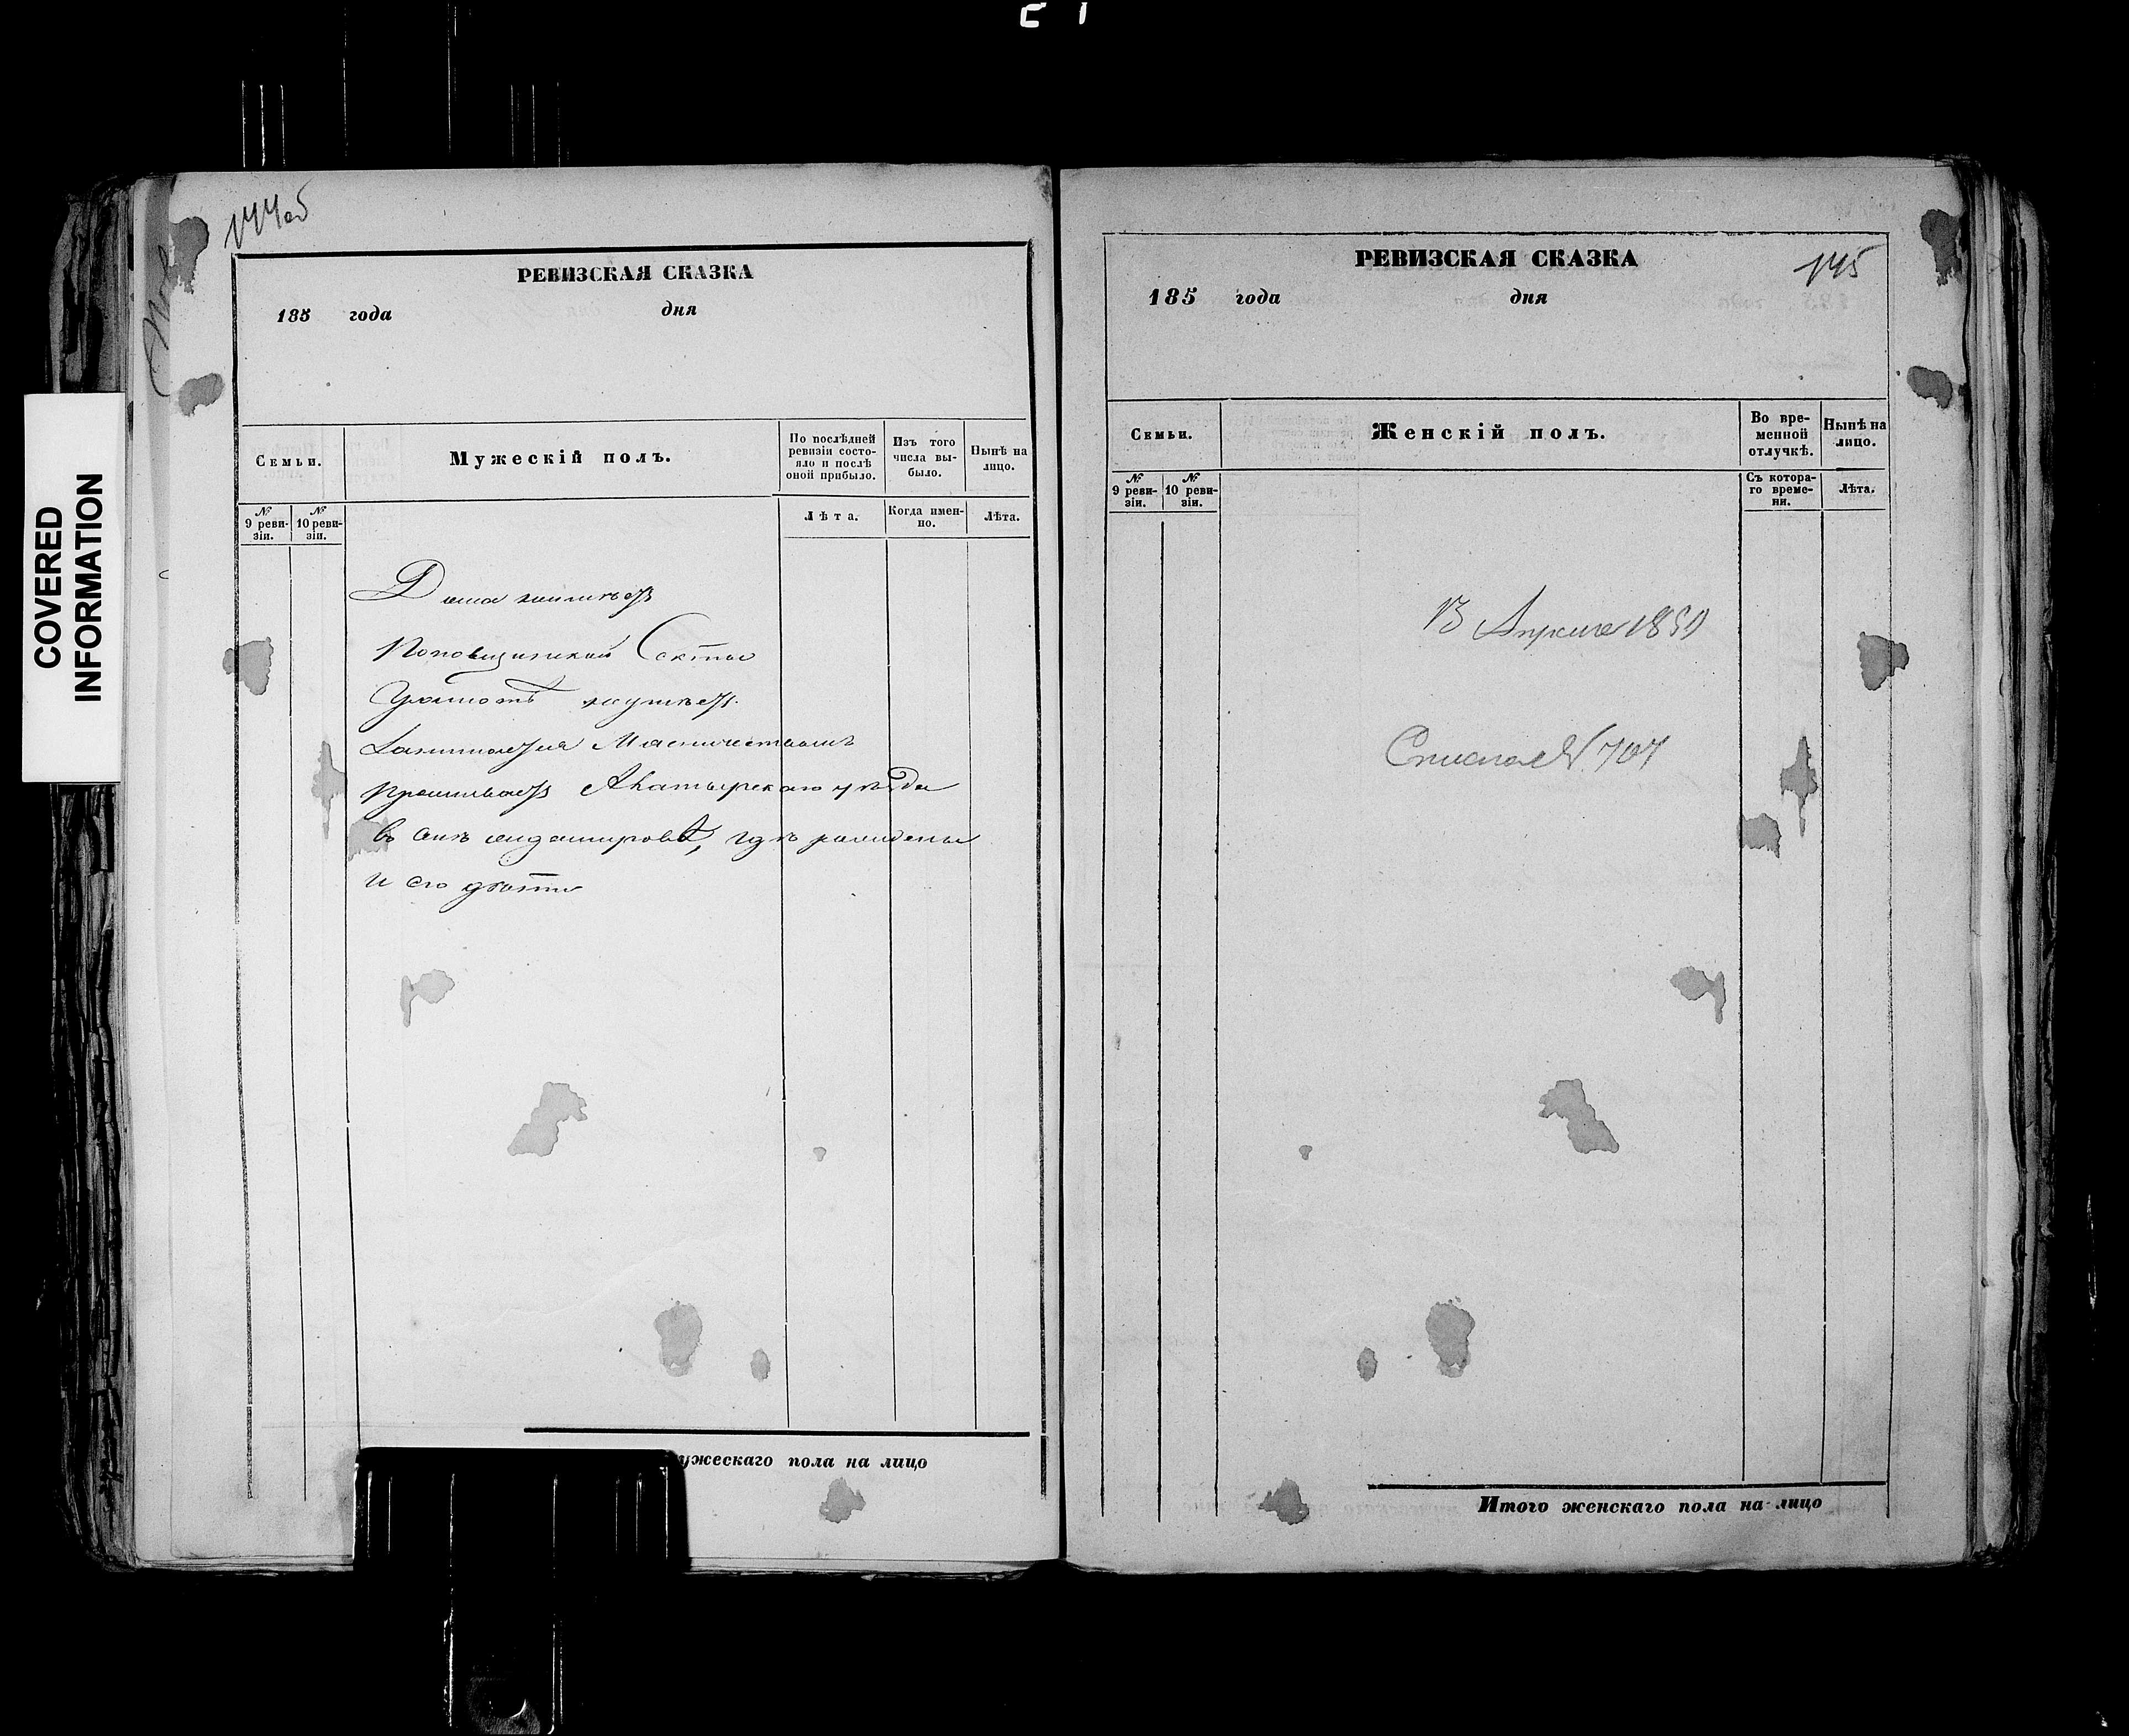 COVERED
INFORMATION
144об
РЕВИЗСКАЯ СКАЗКА
185 года дня
Семьи.
Мужескій полъ.
По послѣдней ревизіи состояло и послѣ оной прибыло.
Изъ того числа выбыло.
Нынѣ на лицо.
№ 9 ревизіи.
№ 10 ревизіи.
Лѣта.
Когда именно.
Лѣта.
Дома
Поповщинской Секты
Грамотѣ
Занимается
проживаетъ Аккатырскаго уѣзда
въ
, гдѣ рождены
и его дѣти
ужескаго пола на лицо
РЕВИЗСКАЯ СКАЗКА
145
185 года дня
Семьи.
Женскій полъ.
Во временной отлучкѣ.
Нынѣ на лицо.
№ 9 ревизіи.
№ 10 ревизіи.
Съ котораго времени.
Лѣта.
13 Апреля
Списка № 707
Итого женскаго пола на лицо